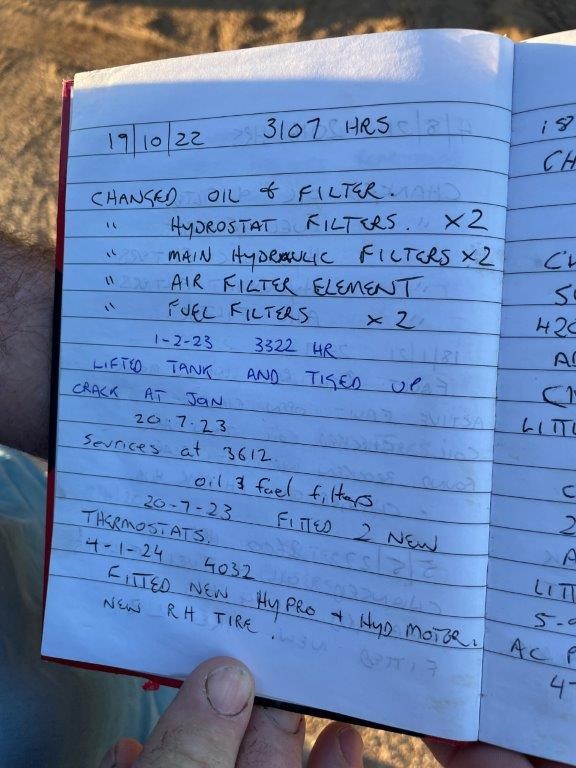 19/10/22 3107 HRS
CHANGED OIL & FILTER.
" HYDROSTAT FILTERS. x2
" MAIN HYDRAULIC FILTERS x2
" AIR FILTER ELEMENT
" FUEL FILTERS x 2
1-2-23 3322 HR
LIFTED TANK AND TIGED UP
CRACK AT JOIN
20.7.23
Sevrices at 3612
oil & fuel filters
20-7-23 FITTED 2 NEW
THERMOSTATS.
4-1-24 4032
FITTED NEW HYPRO + HYD MOTOR.
NEW RH TIRE.
18
CH
420
LITT
2
LITT
5-
AC P